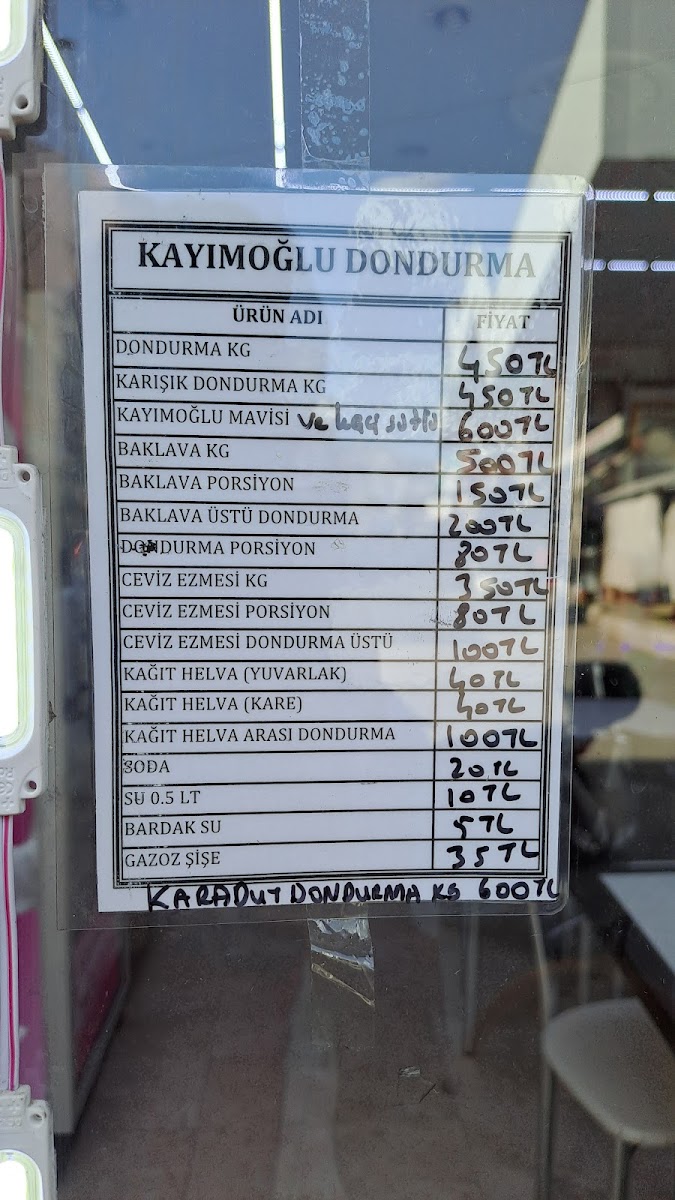 KAYIMOĞLU DONDURMA
ÜRÜN ADI FİYAT
DONDURMA KG 450TL
KARIŞIK DONDURMA KG 450TL
KAYIMOĞLU MAVİSİ ve keçi sütlü 600TL
BAKLAVA KG 500TL
BAKLAVA PORSİYON 150TL
BAKLAVA ÜSTÜ DONDURMA 200TL
DONDURMA PORSİYON 80TL
CEVİZ EZMESİ KG 350TL
CEVİZ EZMESİ PORSİYON 80TL
CEVİZ EZMESİ DONDURMA ÜSTÜ 100TL
KAĞIT HELVA (YUVARLAK) 40TL
KAĞIT HELVA (KARE) 40TL
KAĞIT HELVA ARASI DONDURMA 100TL
SODA 20TL
SU 0.5 LT 10TL
BARDAK SU 5TL
GAZOZ ŞİŞE 35TL
KARADUT DONDURMA KG 600TL